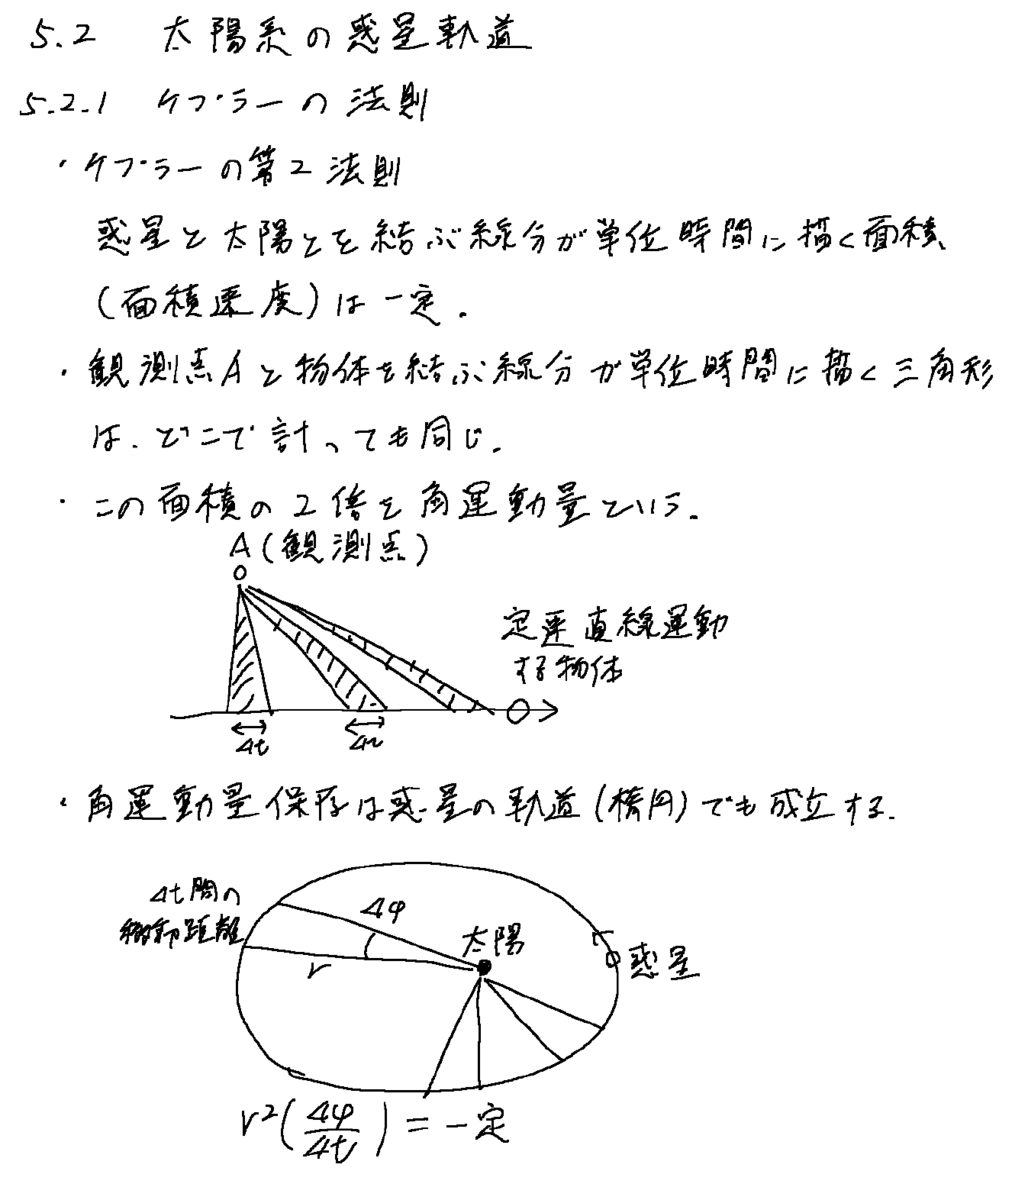 5.2 太陽系の惑星軌道
5.2.1 ケプラーの法則
・ケプラーの第2法則
惑星と太陽とを結ぶ線分が単位時間に描く面積
(面積速度)は一定.
・観測点Aと物体を結ぶ線分が単位時間に描く三角形
は、どこで計っても同じ.
・この面積の2倍を角運動量という.
A(観測点)
定速直線運動
する物体
Δt
Δt
・角運動量保存は惑星の軌道(楕円)でも成立する.
Δt間の
移動距離
Δφ
太陽
r
惑星
r²(Δφ/Δt)=一定